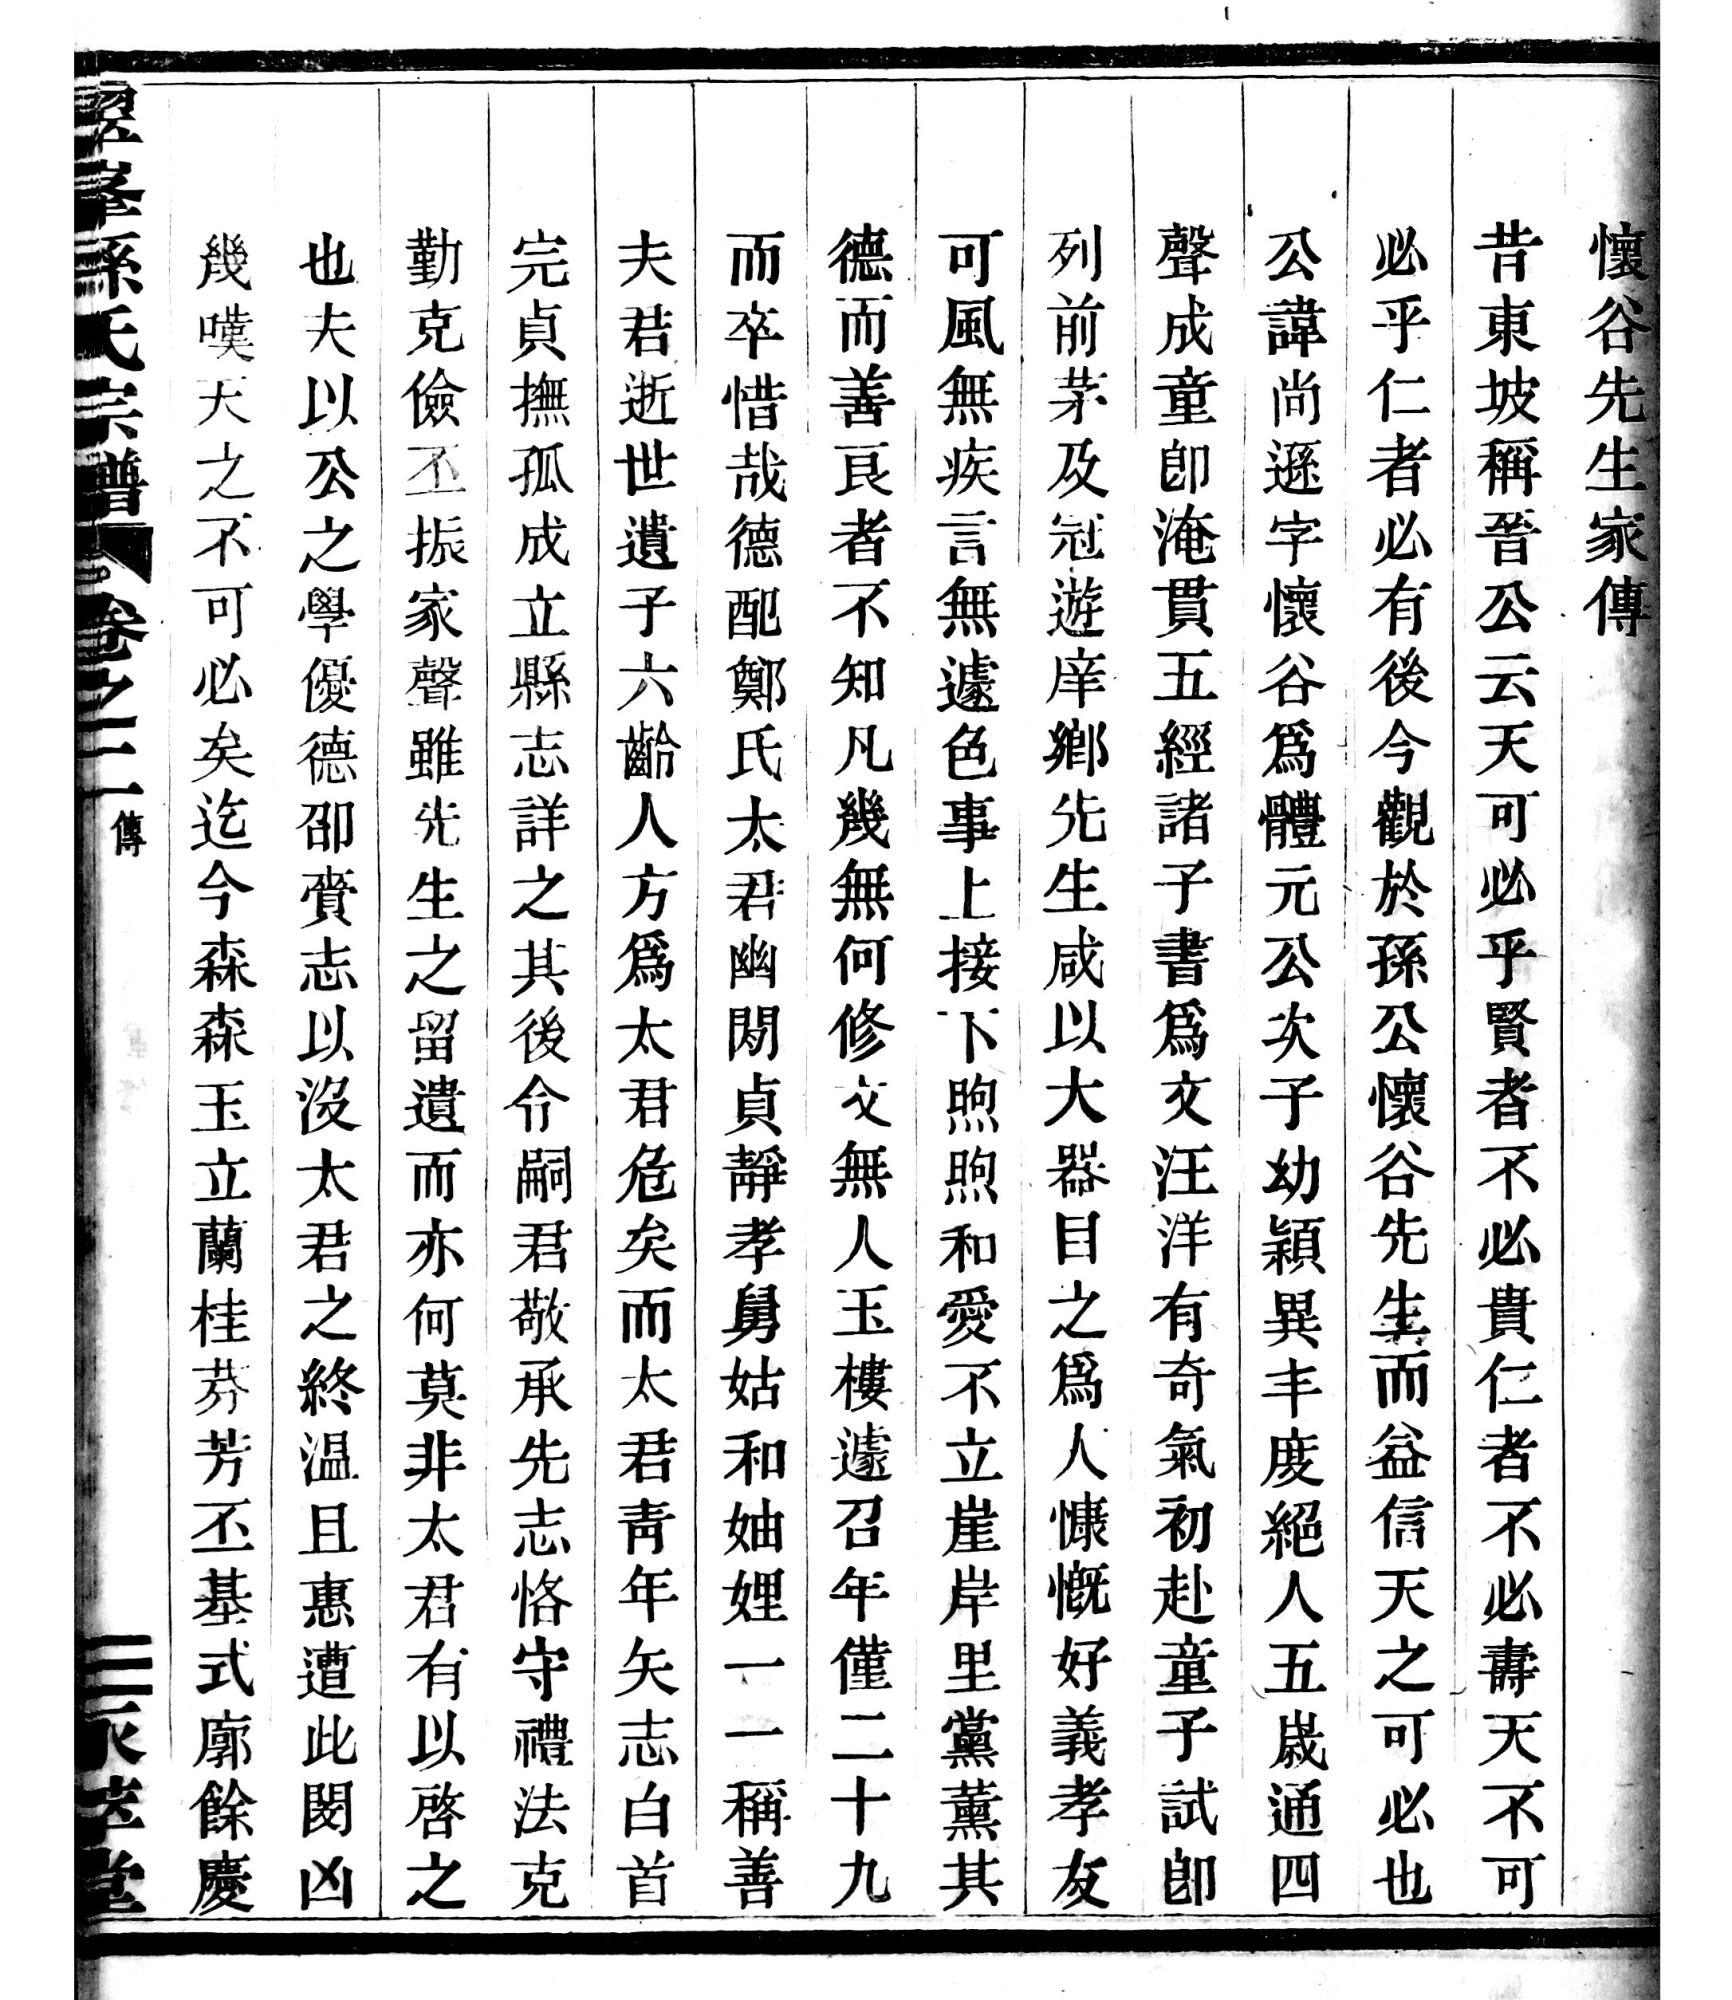 懷谷先生家傳
昔東坡稱晉公云天可必乎賢者不必貴仁者不必壽天不可
必乎仁者必有後今觀於孫公懷谷先生而益信天之可必也
公諱尚遜字懷谷爲體元公次子幼穎異丰度絕人五歲通四
聲成童卽淹貫五經諸子書爲文汪洋有奇氣初赴童子試卽
列前茅及冠遊庠鄉先生咸以大器目之爲人慷慨好義孝友
可風無疾言無遽色事上接下煦煦和愛不立崖岸里黨薰其
德而善良者不知凡幾無何修文無人玉樓遽召年僅二十九
而卒惜哉德配鄭氏太君幽閒貞靜孝舅姑和妯娌一一稱善
夫君逝世遺子六齡人方爲太君危矣而太君靑年矢志白首
完貞撫孤成立縣志詳之其後令嗣君敬承先志恪守禮法克
勤克儉丕振家聲雖先生之留遺而亦何莫非太君有以啓之
也夫以公之學優德邵賫志以沒太君之終溫且惠遭此閔凶
幾嘆天之不可必矣迄今森森玉立蘭桂芬芳丕基式廓餘慶
翠峯孫氏宗譜 卷之二 傳 二 永萃堂